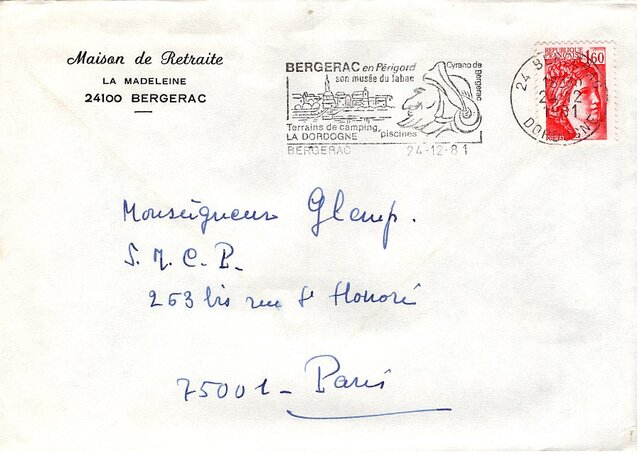 Maison de Retraite
LA MADELEINE
24100 BERGERAC
BERGERAC en Périgord
son musée du tabac
Cyrano de Bergerac
Terrains de camping, piscines
LA DORDOGNE
BERGERAC 24-12-81
REPUBLIQUE FRANÇAISE 1,60
24 B
DORDOGNE
Monseigneur Glemp.
S. M. C. P.
263 bis rue St Honoré
75001 - Paris